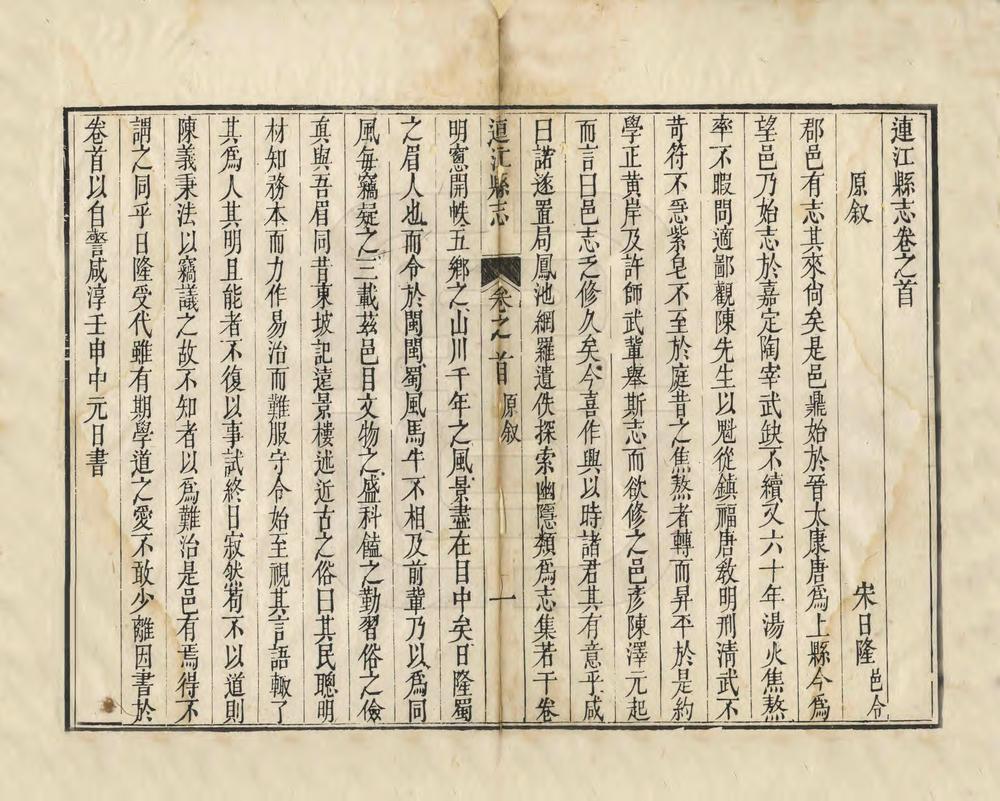 連江縣志卷之首
原叙
宋日隆邑令
郡邑有志其來尙矣是邑鼎始於晉太康唐爲上縣今爲
望邑乃始志於嘉定陶宰武缺不續又六十年湯火焦熬
率不暇問適鄙觀陳先生以魁從鎮福唐敎明刑淸武不
苛符不惡紫皂不至於庭昔之焦熬者轉而昇平於是約
學正黃岸及許師武輩舉斯志而欲修之邑彥陳澤元起
而言曰邑志之修久矣今喜作興以時諸君其有意乎咸
曰諾遂置局鳳池網羅遺佚探索幽隱類爲志集若干卷
連江縣志 卷之首 原叙 一
明窻開帙五鄉之山川千年之風景盡在目中矣日隆蜀
之眉人也而令於閩閩蜀風馬牛不相及前輩乃以爲同
風每竊疑之三載茲邑目文物之盛科饁之勤習俗之儉
眞與吾眉同昔東坡記遠景樓述近古之俗曰其民聰明
材知務本而力作易治而難服守令始至視其言語輙了
其爲人其明且能者不復以事試終日寂然苟不以道則
陳義秉法以竊議之故不知者以爲難治是邑有焉得不
謂之同乎日隆受代雖有期學道之愛不敢少離因書於
卷首以自警咸淳壬申中元日書